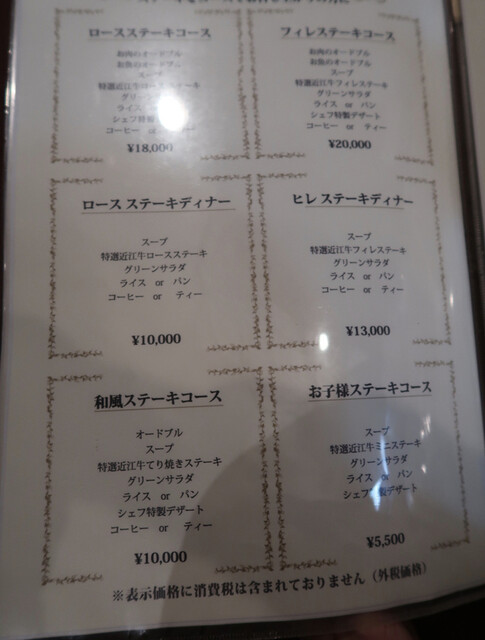 ロースステーキコース
お肉のオードブル
お魚のオードブル
スープ
特選近江牛ロースステーキ
グリーンサラダ
ライス or パン
シェフ特製
コーヒー or ティー
¥18,000
フィレステーキコース
お肉のオードブル
お魚のオードブル
スープ
特選近江牛フィレステーキ
グリーンサラダ
ライス or パン
シェフ特製デザート
コーヒー or ティー
¥20,000
ロース ステーキディナー
スープ
特選近江牛ロースステーキ
グリーンサラダ
ライス or パン
コーヒー or ティー
¥10,000
ヒレ ステーキディナー
スープ
特選近江牛フィレステーキ
グリーンサラダ
ライス or パン
コーヒー or ティー
¥13,000
和風ステーキコース
オードブル
スープ
特選近江牛てり焼きステーキ
グリーンサラダ
ライス or パン
シェフ特製デザート
コーヒー or ティー
¥10,000
お子様ステーキコース
スープ
特選近江牛ミニステーキ
グリーンサラダ
ライス or パン
シェフ特製デザート
¥5,500
※表示価格に消費税は含まれておりません（外税価格）